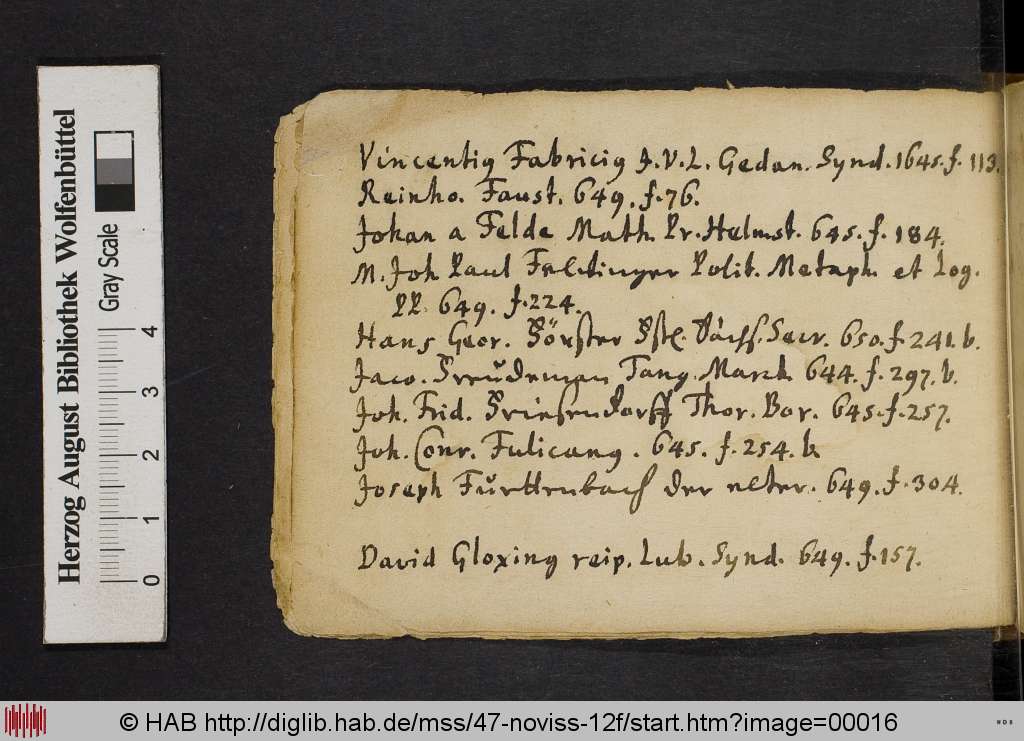 Herzog August Bibliothek Wolfenbüttel
Gray Scale
0 1 2 3 4
Vincentiꝰ Fabriciꝰ J.V.L. Gedan. Synd. 1645. f. 113.
Reinho. Faust. 649. f. 76.
Johan a Felde Math. Pr. Helmst. 645. f. 184.
M. Joh Paul Felwinger Polit. Metaph. et Log.
PP. 649. f. 224.
Hans Geor. Förster Secr. 650. f. 241. b.
Jaco. Tang. March. 644. f. 297. b.
Joh. Frid. Friesendorff Thor. Bor. 645. f. 257.
Joh. Conr. 645. f. 254. b.
Joseph Fürttenbach der elter. 649. f. 304.
David Gloxinꝰ reip. Lub. Synd. 649. f. 157.
© HAB http://diglib.hab.de/mss/47-noviss-12f/start.htm?image=00016